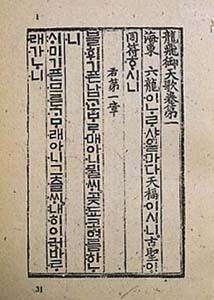 龍飛御天歌卷第一
海東 六龍이ᄂᆞᄅᆞ샤일마다天福이시니古聖이
同符ᄒᆞ시니
右第一章
불휘기픈남ᄀᆞᆫᄇᆞᄅᆞ매아니뮐ᄊᆡ곶됴코여름하ᄂᆞ
니
ᄉᆡ미기픈므른ᄀᆞᄆᆞ래아니그츨ᄊᆡ내히이러바ᄅᆞ
래가ᄂᆞ니